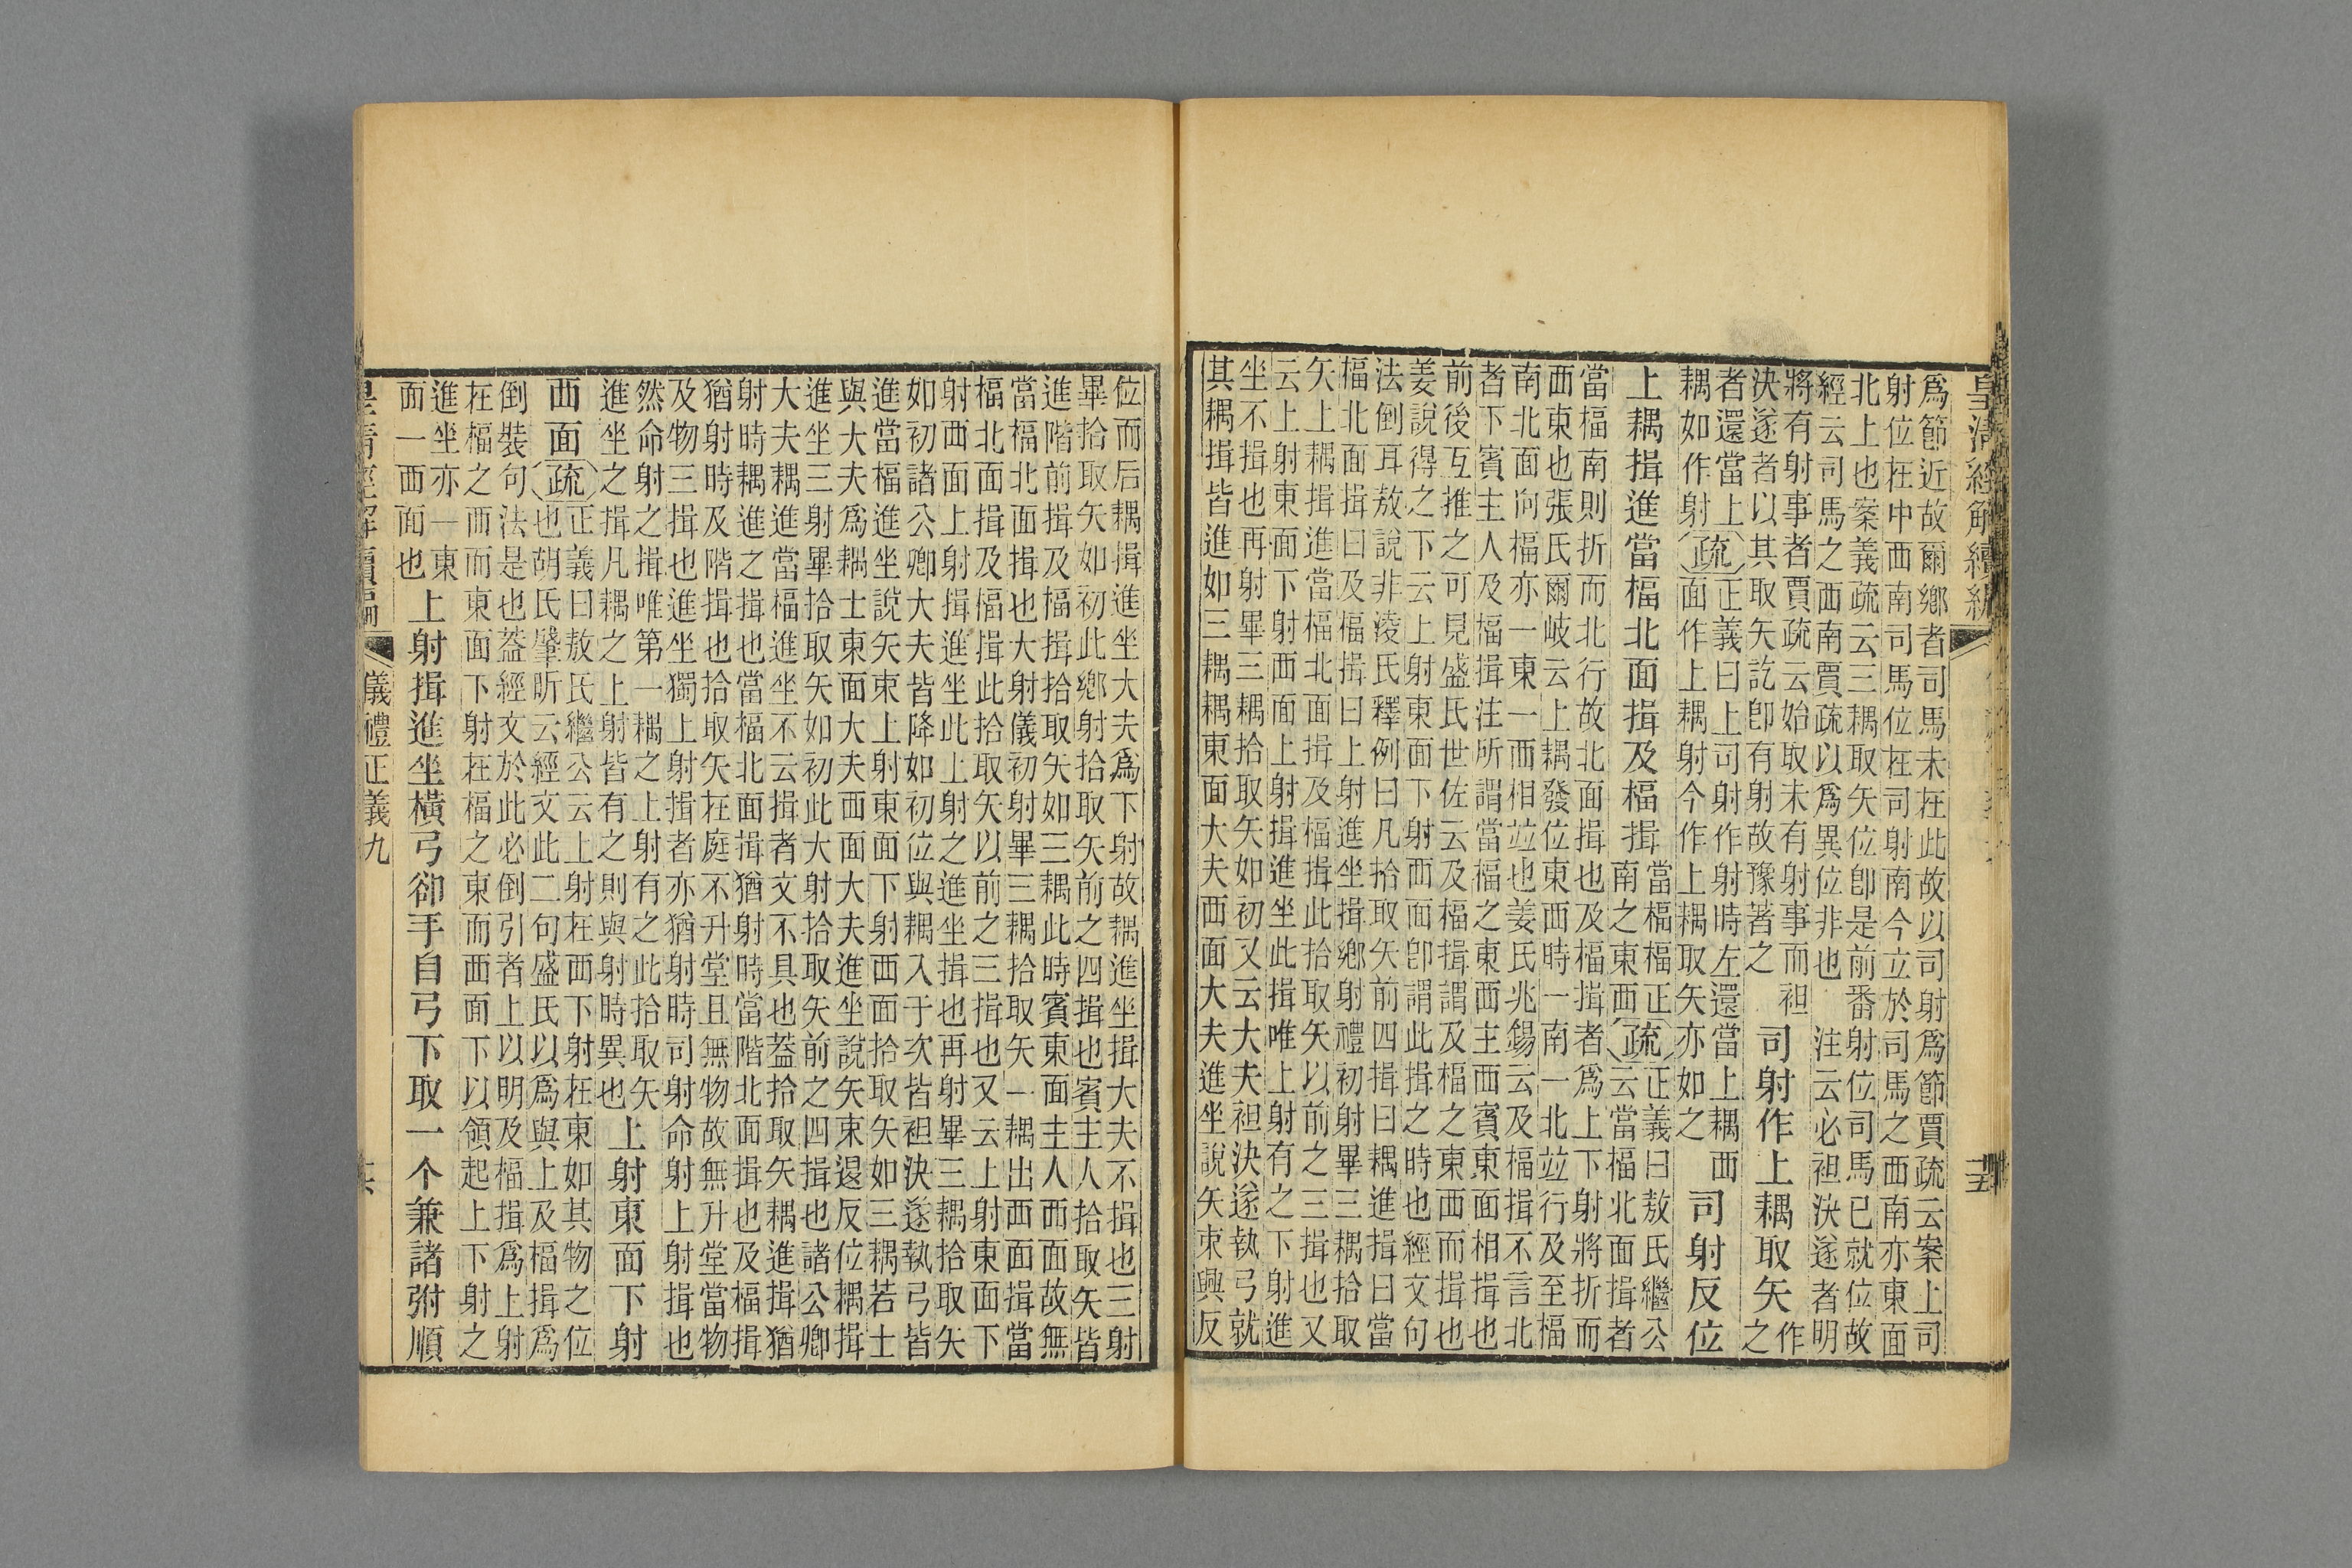 皇清經解續編
爲節近故爾鄉者司馬未在此故以司射爲節賈疏云案上司
射位在中西南司馬位在司射南今立於司馬之西南亦東面
北上也案義疏云三耦取矢位卽是前番射位司馬已就位故
經云司馬之西南賈疏以爲異位非也 注云必袒決遂者明
將有射事者賈疏云始取未有射事而袒
決遂者以其取矢訖卽有射故豫著之
司射作上耦取矢
作
之
者還當上
耦如作射
疏
正義曰上司射作射時左還當上耦西
面作上耦射今作上耦取矢亦如之
司射反位
上耦揖進當楅北面揖及楅揖
當楅楅正
南之東西
疏
正義曰敖氏繼公
云當楅北面揖者
當楅南則折而北行故北面揖也及楅揖者爲上下射將折而
西東也張氏爾岐云上耦發位東西時一南一北竝行及至楅
南北面向楅亦一東一西相竝也姜氏兆錫云及楅揖不言北
者下賓主人及楅揖注所謂當楅之東西主西賓東面相揖也
前後互推之可見盛氏世佐云及楅揖謂及楅之東西而揖也
姜說得之下云上射東面下射西面卽謂此揖之時也經文句
法倒耳敖說非淩氏釋例曰凡拾取矢前四揖曰耦進揖曰當
楅北面揖曰及楅揖曰上射進坐揖鄉射禮初射畢三耦拾取
矢上耦揖進當楅北面揖及楅揖此拾取矢以前之三揖也又
云上射東面下射西面上射揖進坐此揖唯上射有之下射進
坐不揖也再射畢三耦拾取矢如初又云大夫袒決遂執弓就
其耦揖皆進如三耦耦東面大夫西面大夫進坐說矢束興反
位而后耦揖進坐大夫爲下射故耦進坐揖大夫不揖也三射
畢拾取矢如初此鄉射拾取矢前之四揖也賓主人拾取矢皆
進階前揖及楅揖拾取矢如三耦此時賓東面主人西面故無
當楅北面揖也大射儀初射畢三耦拾取矢一耦出西面揖當
楅北面揖及楅揖此拾取矢以前之三揖也又云上射東面下
射西面上射揖進坐此上射之進坐揖也再射畢三耦拾取矢
如初諸公卿大夫皆降如初位與耦入于次皆袒決遂執弓皆
進當楅進坐說矢東上射東面下射西面拾取矢如三耦若士
與大夫爲耦士東面大夫西面大夫進坐說矢束退反位耦揖
進坐三射畢拾取矢如初此大射拾取矢前之四揖也諸公卿
大夫耦進當楅進坐不云揖者文不具也葢拾取矢耦進揖猶
射時耦進之揖也當楅北面揖猶射時當階北面揖也及楅揖
猶射時及階揖也拾取矢在庭不升堂且無物故無升堂當物
及物三揖也進坐獨上射揖者亦猶射時司射命射上射揖也
然命射之揖唯第一耦之上射有之此拾取矢
進坐之揖凡耦之上射皆有之則與射時異也
上射東面下射
西面
疏
正義曰敖氏繼公云上射在西下射在東如其物之位
也胡氏肇昕云經文此二句盛氏以爲與上及楅揖爲
倒裝句法是也葢經文於此必倒引者上以明及楅揖爲上射
在楅之西而東面下射在楅之東而西面下以領起上下射之
進坐亦一東
面一西面也
上射揖進坐橫弓卻手自弓下取一个兼諸弣順
皇清經解續編
儀禮正義九